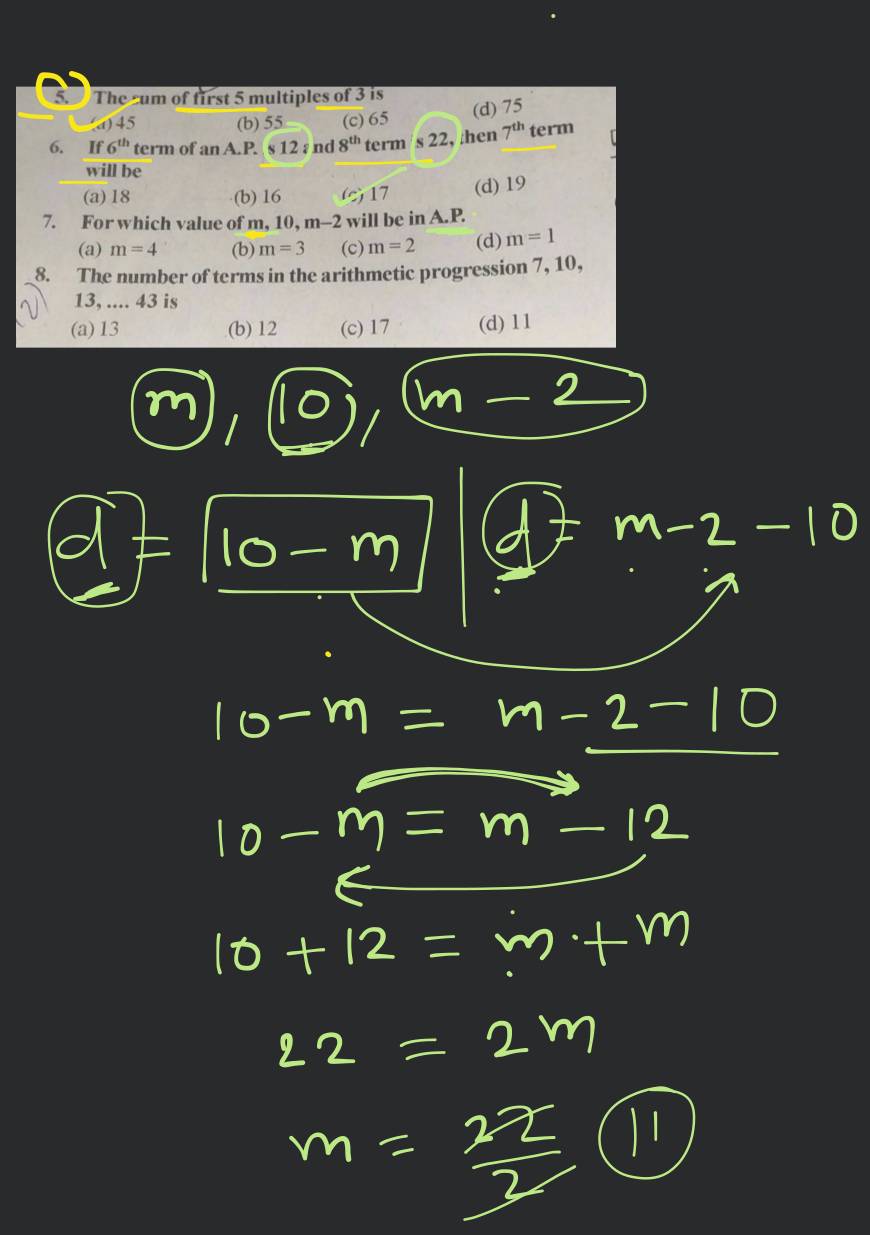 5. The sum of first 5 multiples of 3 is
(a) 45 (b) 55 (c) 65 (d) 75
6. If 6th term of an A.P. is 12 and 8th term is 22, then 7th term
will be
(a) 18 (b) 16 (c) 17 (d) 19
7. For which value of m, 10, m–2 will be in A.P.
(a) m = 4 (b) m = 3 (c) m = 2 (d) m = 1
8. The number of terms in the arithmetic progression 7, 10,
13, .... 43 is
(a) 13 (b) 12 (c) 17 (d) 11
m, 10, m – 2
d = 10 – m | d = m – 2 – 10
10 – m = m – 2 – 10
10 – m = m – 12
10 + 12 = m + m
22 = 2m
m = 22/2 11